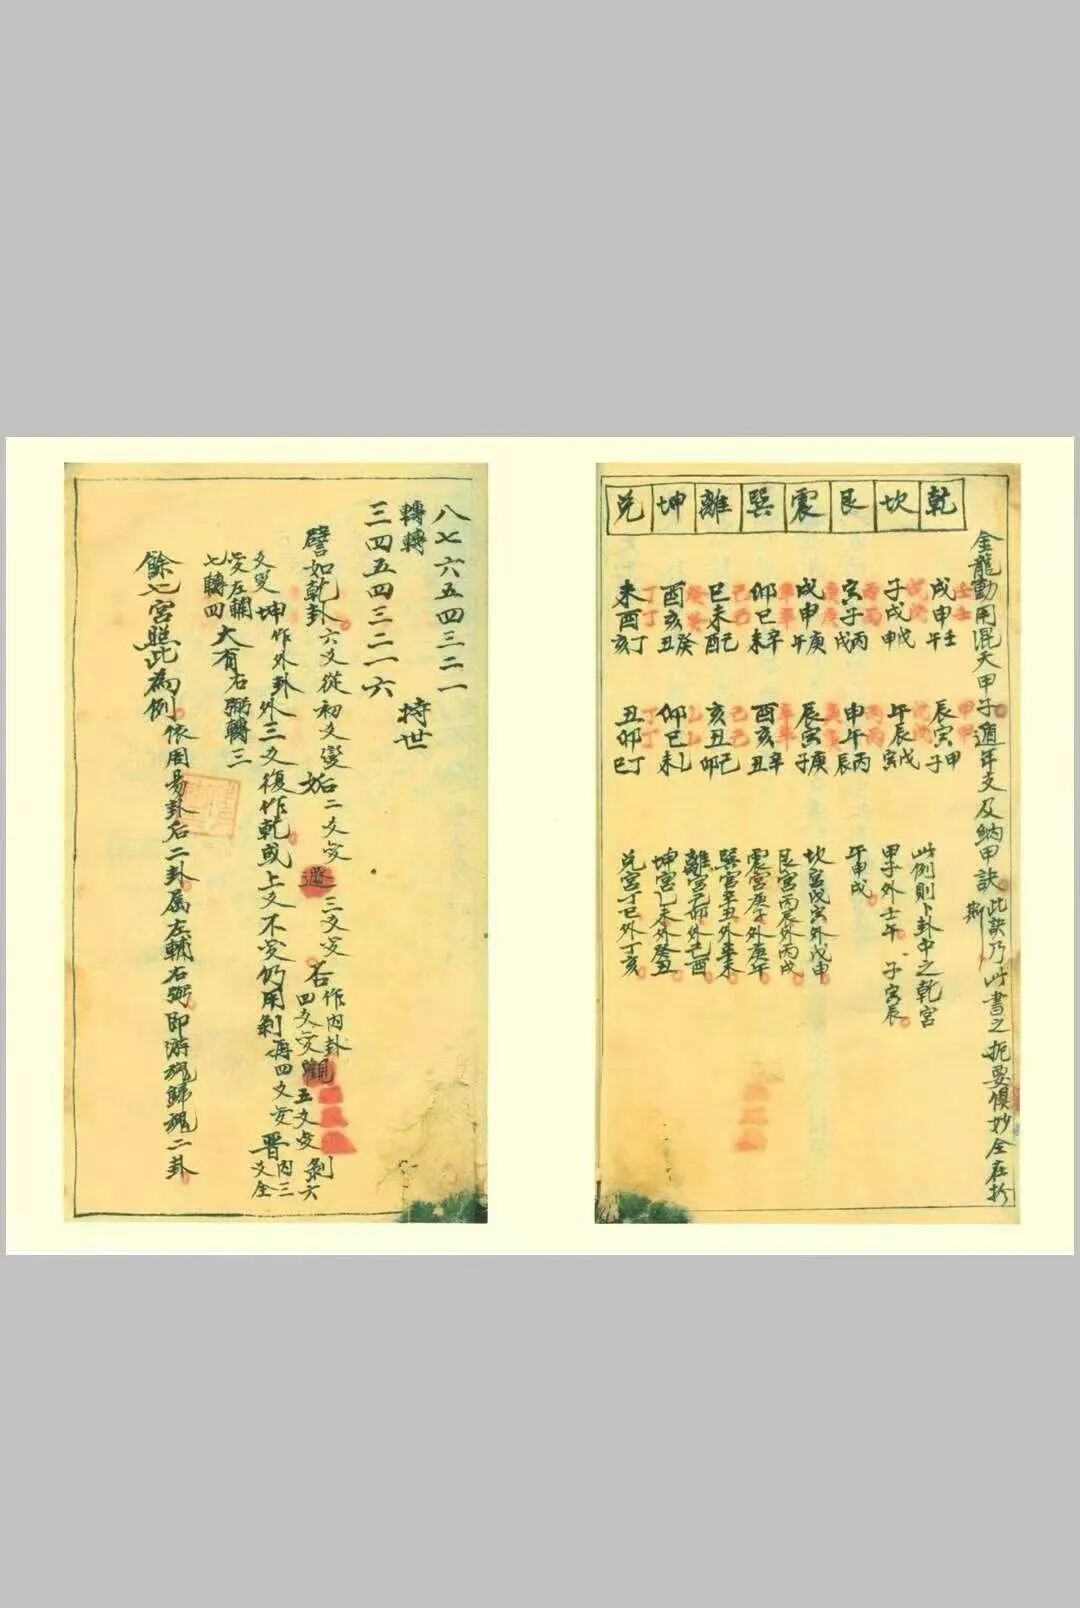 金龍動用混天甲子遁年支及納甲訣此訣乃此書之扼要俱妙全在於斯
乾 坎 艮 震 巽 離 坤 兌
戌申午壬 壬壬 辰寅子甲 甲甲
子戌申戊 戊戊 午辰寅戊 戊戊
寅子戌丙 丙丙 申午辰丙 丙丙
戌申午庚 庚庚 辰寅子庚 庚庚
卯巳未辛 辛辛 酉亥丑辛 辛辛
巳未酉己 己己 亥丑卯己 己己
酉亥丑癸 癸癸 卯巳未乚 乚乚
未酉亥丁 丁丁 丑卯巳丁 丁丁
此例則卜卦中之乾宮
甲子外士午 子寅辰
午申戌
坎宮戊寅外戊申
艮宮丙辰外丙戌
震宮庚子外庚午
巽宮辛丑外辛未
離宮己卯外己酉
坤宮乚未外癸丑
兌宮丁巳外丁亥
八七六五四三二一 持世
轉轉
三四五四三二一六
譬如乾卦六爻從初爻變姤二爻变遯三爻变否作內卦四爻变觀五爻变剝六
爻变坤作外卦外三爻復作乾或上爻不变仍用剝再四爻变晋內三爻全
变左輔七轉四大有右弼轉三
餘七宮照此為例依周易卦后二卦属左輔右弼即游魂歸魂二卦